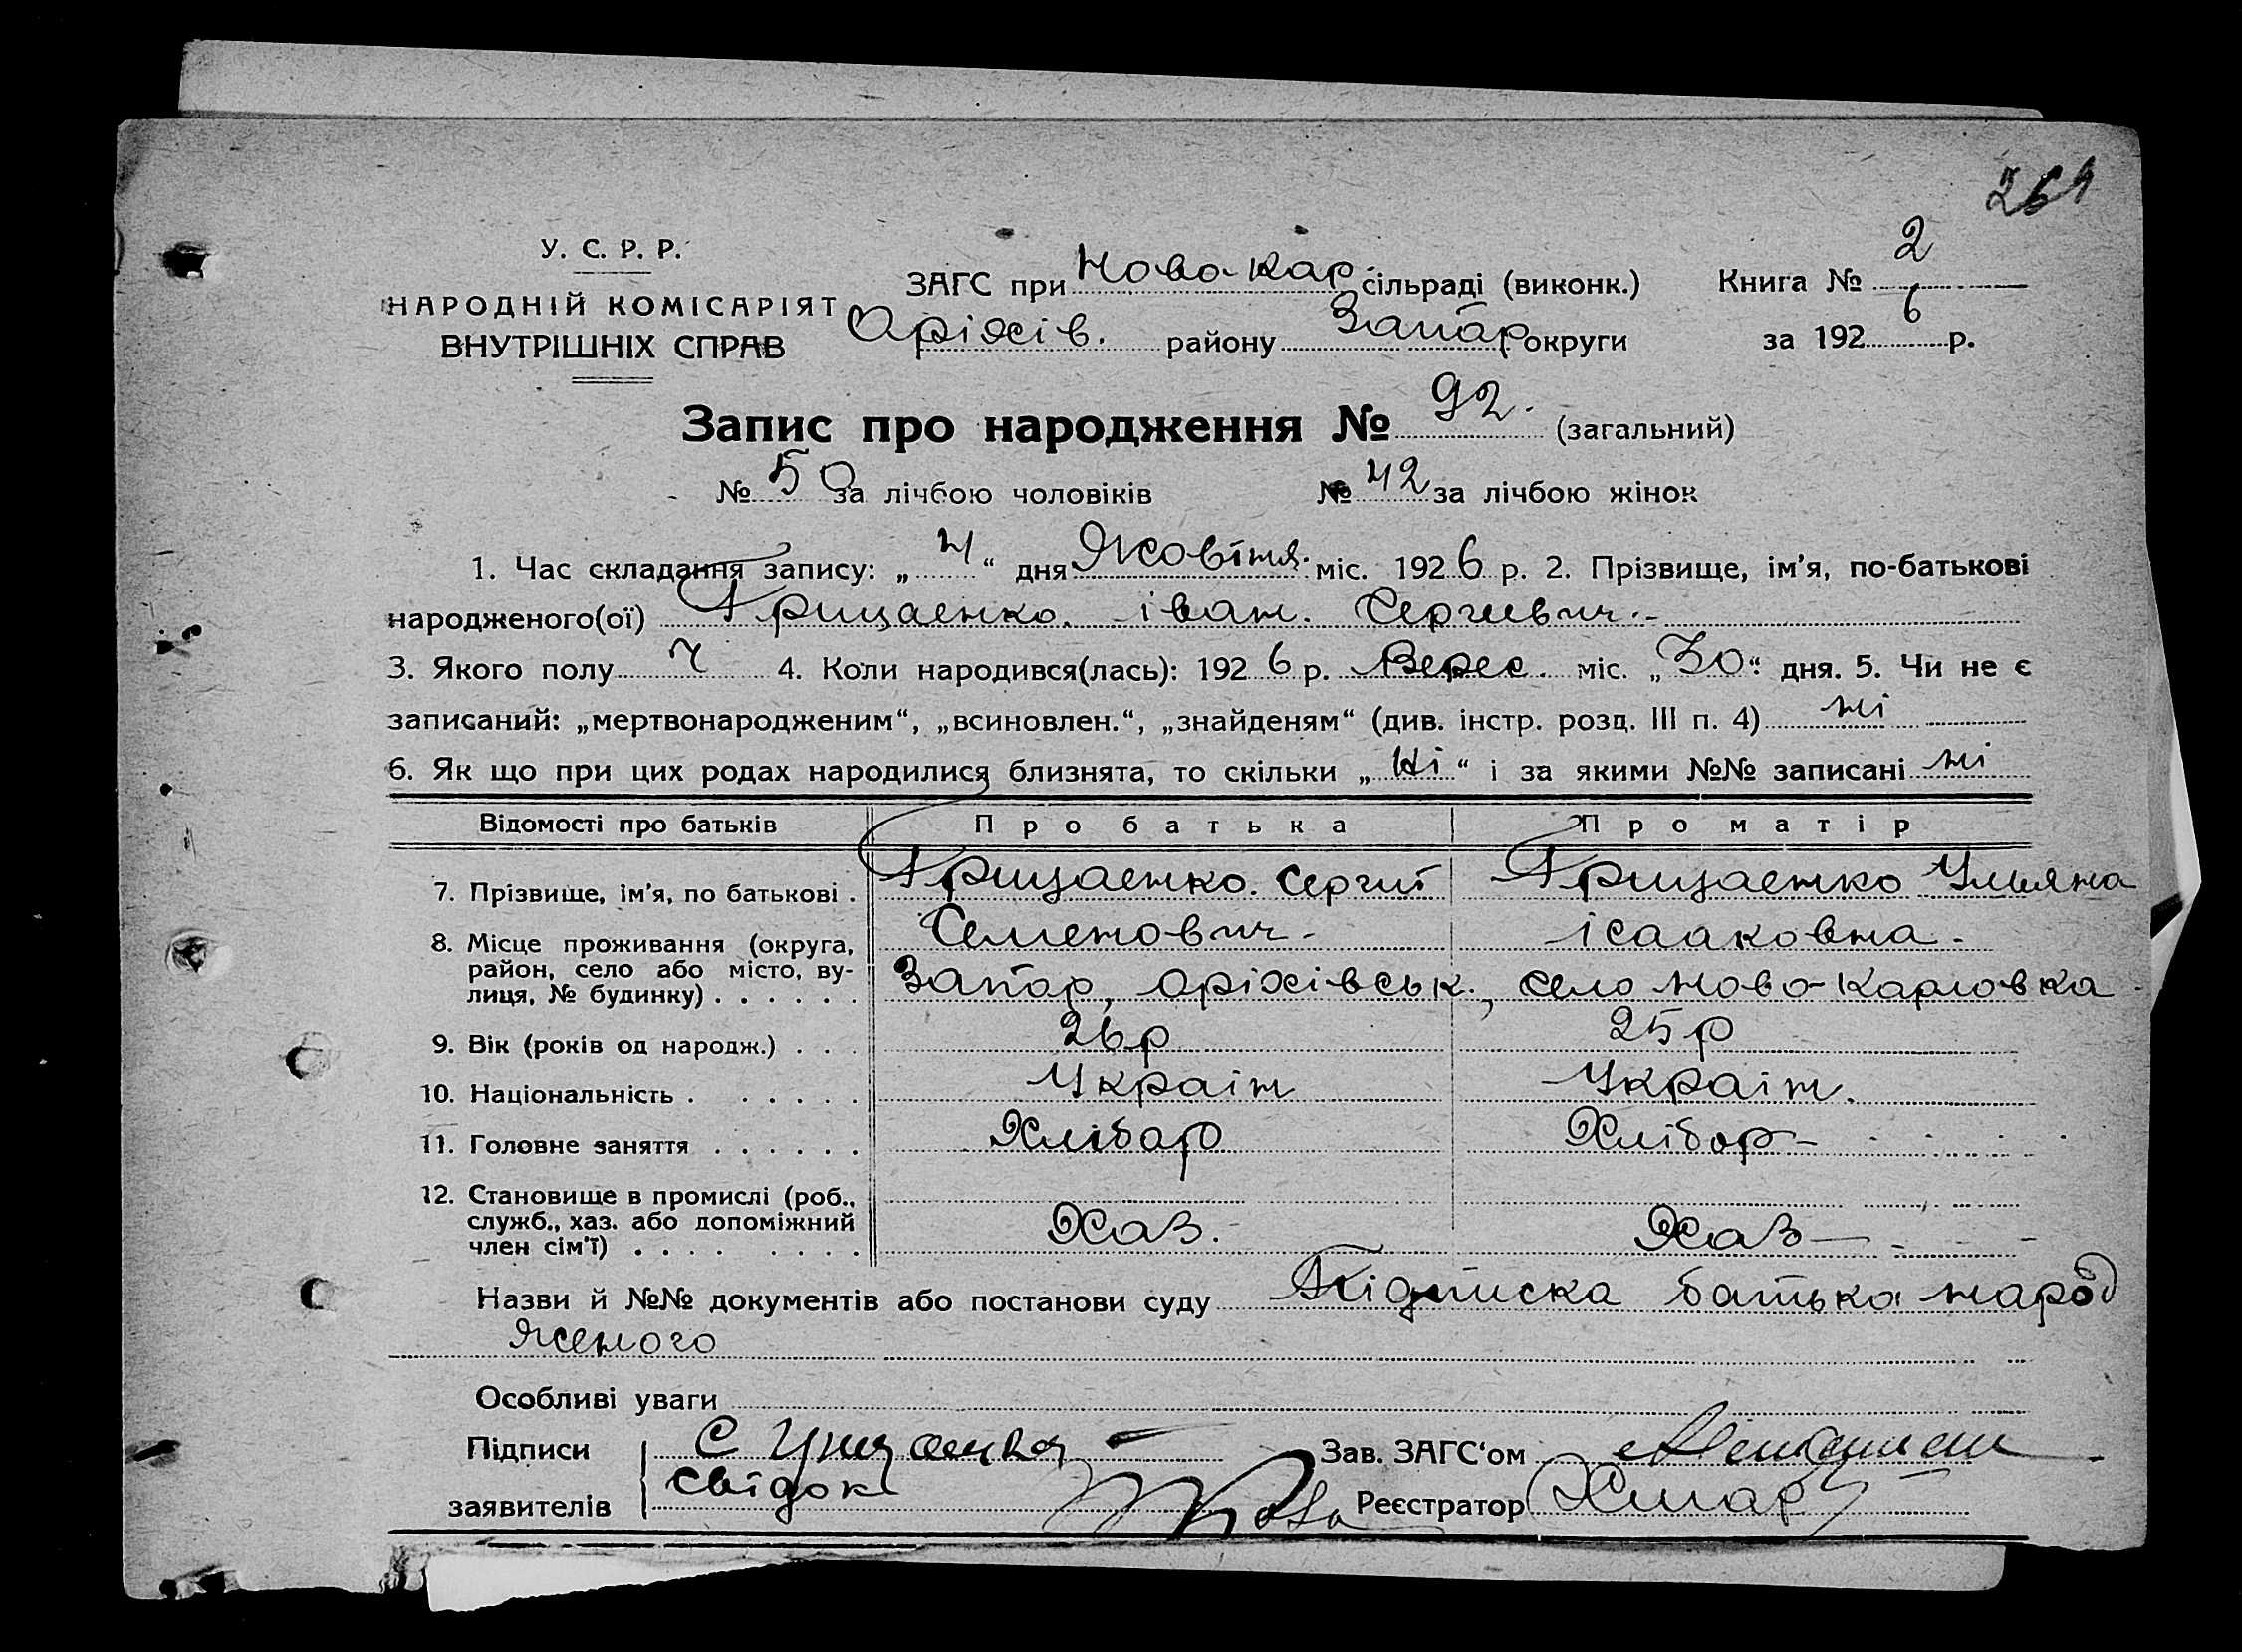 264
У. С. Р. Р.
НАРОДНІЙ КОМІСАРІЯТ
ВНУТРІШНІХ СПРАВ
ЗАГС при Ново-Кар. сільраді (виконк.) Книга № 2
Оріхів. району Запор округи за 1926 р.
Запис про народження № 92. (загальний)
№ 50 за лічбою чоловіків № 42 за лічбою жінок
1. Час складання запису: „ 4 “ дня Жовтня міс. 1926 р. 2. Прізвище, ім’я, по-батькові
народженого(ої) Грицаенко. іван. Сергиевич.-
3. Якого полу ч 4. Коли народився(лась): 1926 р. Верес. міс. „ 30 “ дня. 5. Чи не є
записаний: „мертвонародженим“, „всиновлен.“, „знайденям“ (див. інстр. розд. III п. 4) ні
6. Як що при цих родах народилися близнята, то скільки „ Ні “ і за якими №№ записані ні
Відомості про батьків Про батька Про матір
7. Прізвище, ім’я, по батькові . Грицаенко. Сергий Грицаенко Ульяна
Семенович - ісааковна -
8. Місце проживання (округа, район, село або місто, вулиця, № будинку) . . . . . . Запор, Оріхівськ., село Ново-Карловка
9. Вік (років од народж.) . . . 26р 25р
10. Національність . . . . . . Україн Україн.
11. Головне заняття . . . . . . Хлібор Хлібор-
12. Становище в промислі (роб., служб., хаз. або допоміжний член сім’ї) . . . . . . . . Хаз. Хаз-
Назви й №№ документів або постанови суду Підписка батька народ
женого
Особливі уваги
Підписи С Грицаенко Зав. ЗАГС‘ом
заявителів свідок Реєстратор Хмара